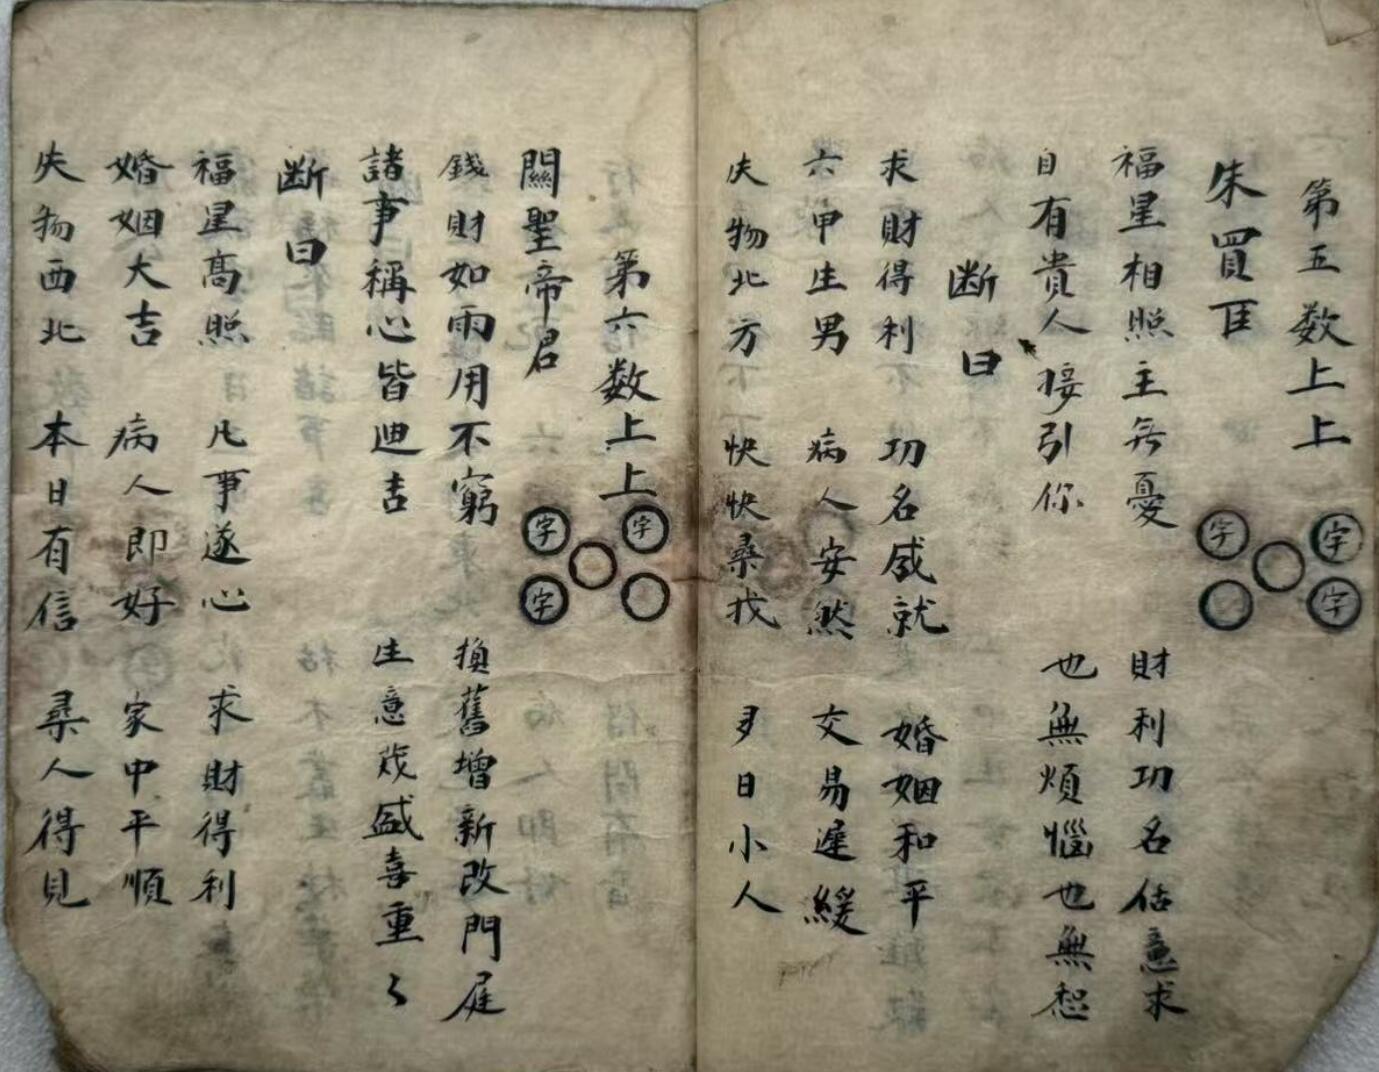 第五数上上
朱買臣
字 字 字
福星相照主無憂 財利功名估意求
自有貴人接引你 也無煩惱也無愁
断曰
求財得利 功名成就 婚姻和平
六甲生男 病人安然 交易遲緩
失物北方 快快尋找 多日小人
第六数上上
關聖帝君
字 字 字
錢財如雨用不窮 換舊增新改門庭
諸事稱心皆迪吉 生意茂盛喜重々
断曰
福星高照 凡事遂心 求財得利
婚姻大吉 病人即好 家中平順
失物西北 本日有信 尋人得見